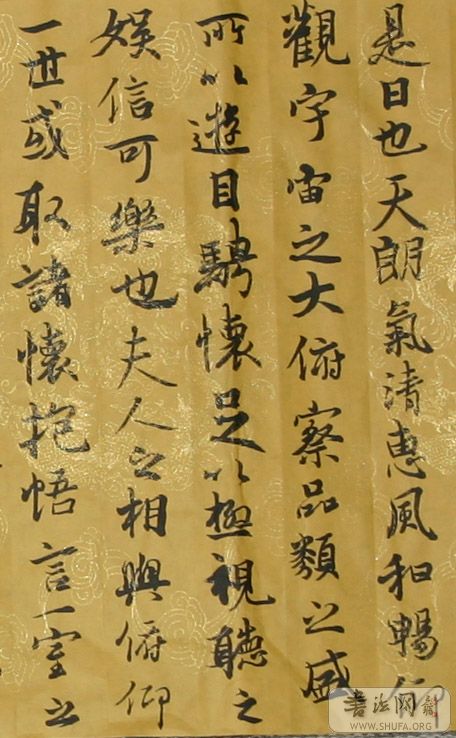 是日也天朗氣清惠風和暢仰
觀宇宙之大俯察品類之盛
所以遊目騁懷足以極視聽之
娛信可樂也夫人之相與俯仰
一世或取諸懷抱悟言一室之
书法网
WWW.SHUFA.ORG